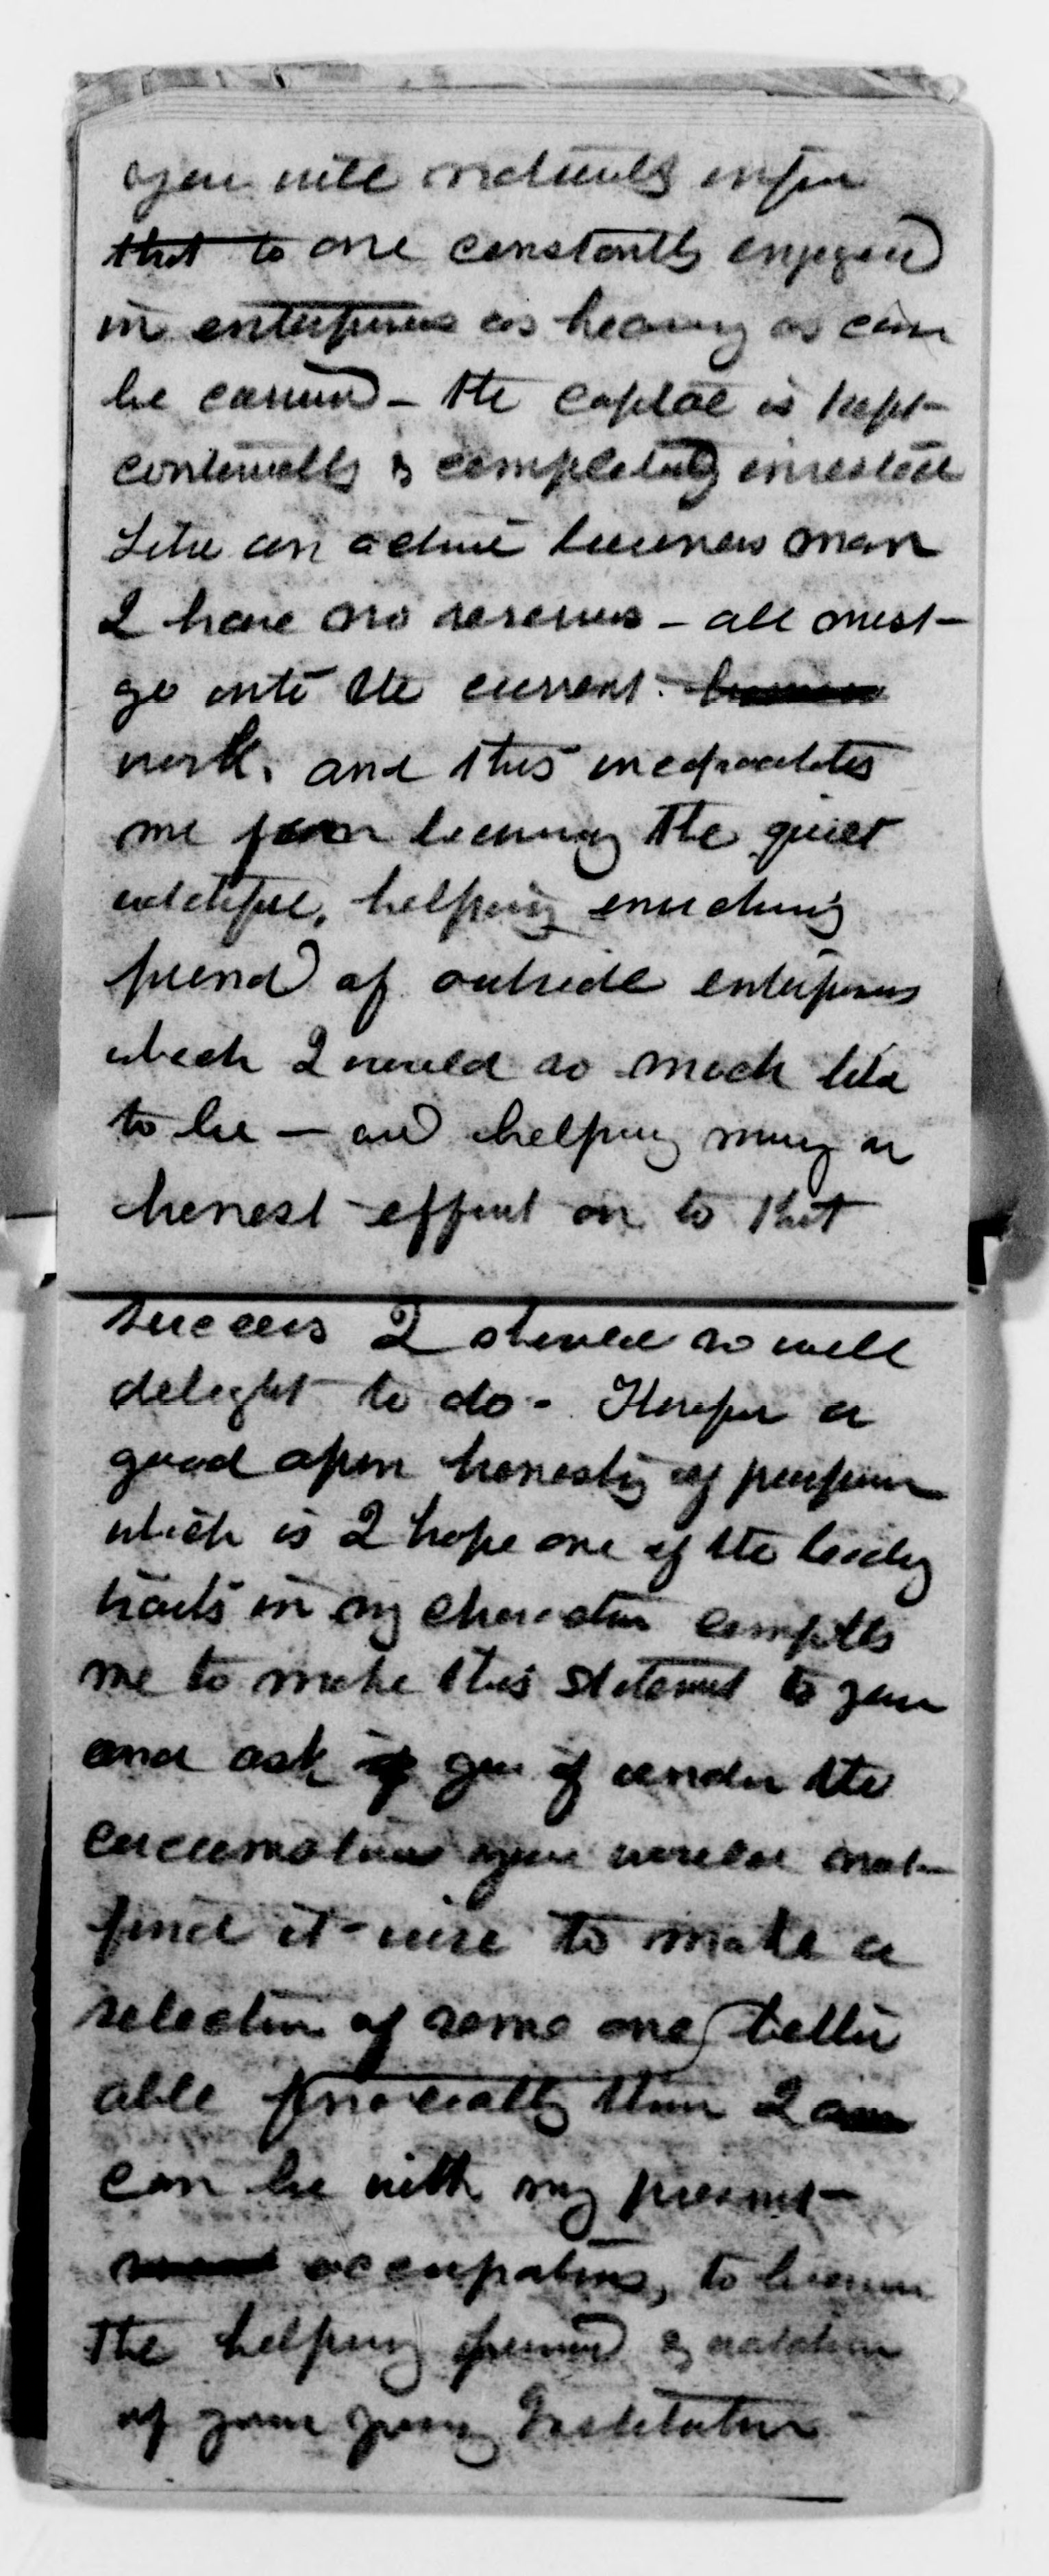 you will naturally infer
that to one constantly engaged
in enterprises as heavy as can
be carried - the capital is kept
continually & completely invested
Like an active business man
I have no reserves - all must
go into the current business
work, and this incapacitates
me from becoming the quiet
watchful, helping enriching
friend of outside enterprises
which I would so much like
to be - and helping many an
honest effort on to that
success I should so well
delight to do - Therefor a
good open honesty of purpose
which is I hope one of the leading
traits in my character compells
me to make this statement to you
and ask if you if under the
circumstances you would not
find it wise to make a
selection of some one better
able financially than I am
can be with my present
occupations, to become
the helping friend &
of your young Institution -